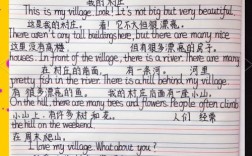 我的村庄
This is my village. Look! It's not big but very beautiful.
这是我的村庄。看!它不大但很漂亮。
There aren't any tall buildings here, but there are many nice
这里没有高楼, 但有很多漂亮的房子。
houses. In front of the village, there is a river. There are many
在村庄的前面, 有一条河。 河里
pretty fish in the river. There is a hill behind my village.
有很多漂亮的鱼。 我的村庄后面有一座小山。
On the hill, there are many trees and flowers. People often climb
小山上,有许多树和花。 人们 经常
the hill on the weekend.
在周末爬山。
I love my village. What about you?